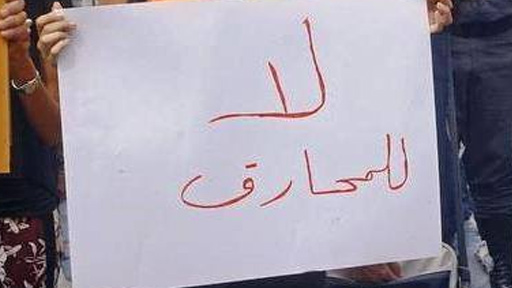 لا
للمحارق